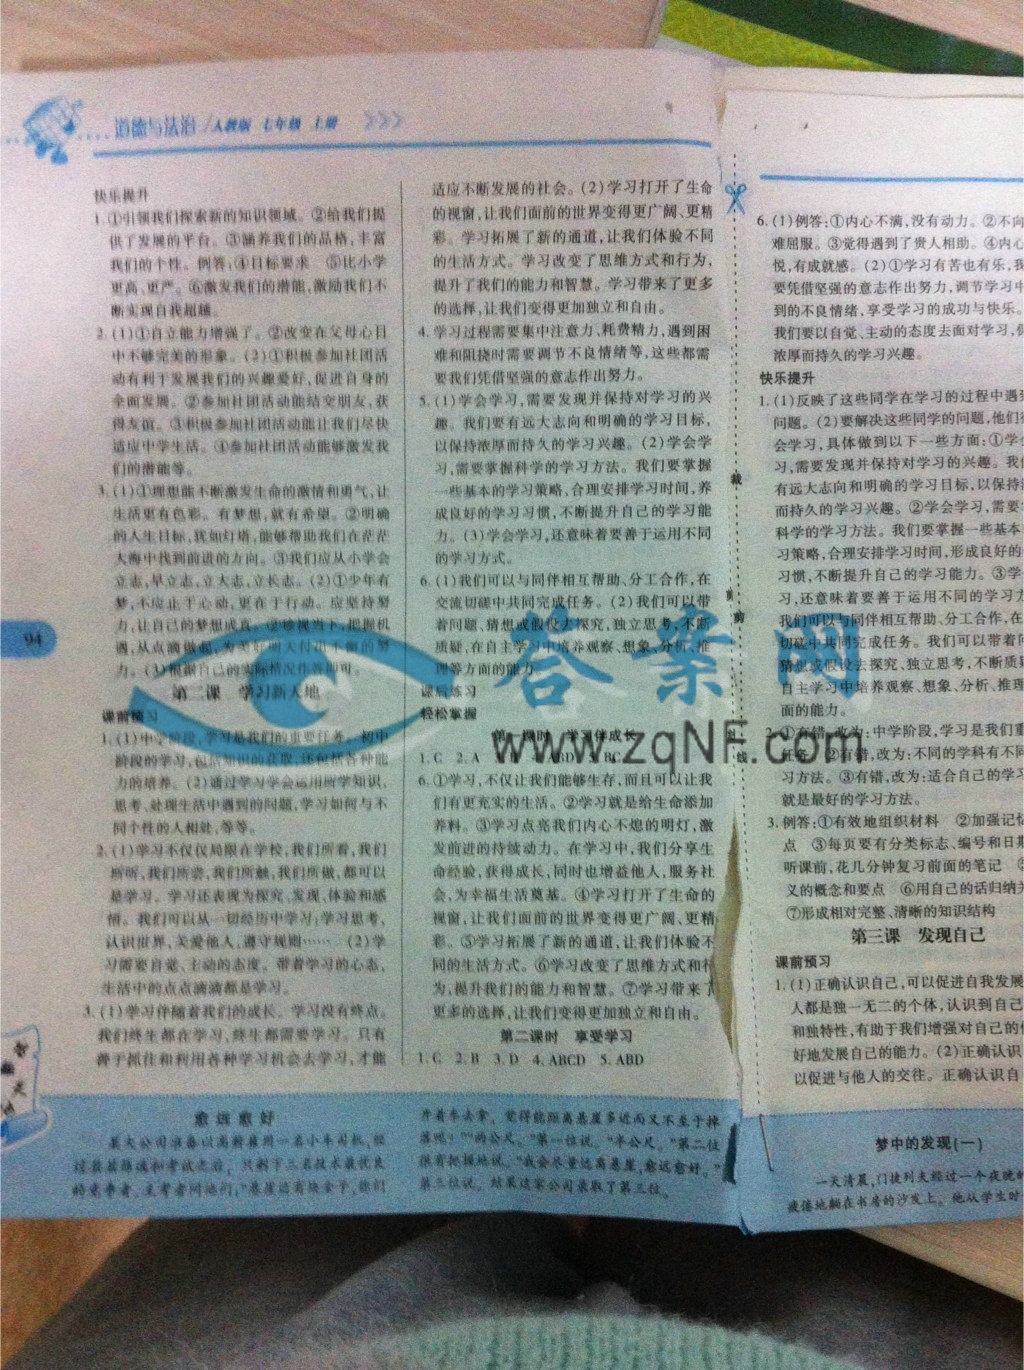 道德与法治/人教版 七年级 上册
快乐提升
1.①引领我们探索新的知识领域。②给我们提
供了发展的平台。③涵养我们的品格,丰富
我们的个性。例答:④目标要求 ⑤比小学
更高、更严。⑥激发我们的潜能,激励我们不
断实现自我超越。
2.(1)①自立能力增强了。②改变在父母心目
中不够完美的形象。(2)①积极参加社团活
动有利于发展我们的兴趣爱好,促进自身的
全面发展。②参加社团活动能结交朋友,获
得友谊。③积极参加社团活动能让我们尽快
适应中学生活。④参加社团活动能够激发我
们的潜能等。
3.(1)①理想能不断激发生命的激情和勇气,让
生活更有色彩。有梦想,就有希望。②明确
的人生目标,犹如灯塔,能够帮助我们在茫茫
大海中找到前进的方向。③我们应从小学会
立志,早立志,立大志,立长志。(2)①少年有
梦,不应止于心动,更在于行动。应坚持努
力,让自己的梦想成真。 当下,把握机
遇,从点滴做起,为美好明天付出不懈的努
力。(3)根据自己的实际情况作答即可。
第二课 学习新天地
课前预习
1.(1)中学阶段,学习是我们的重要任务。初中
阶段的学习,包括知识的获取,还包括各种能
力的培养。(2)通过学习学会运用所学知识,
思考、处理生活中遇到的问题,学习如何与不
同个性的人相处,等等。
2.(1)学习不仅仅局限在学校,我们所看,我们
所听,我们所尝,我们所触,我们所做,都可以
是学习。学习还表现为探究、发现、体验和感
悟。我们可以从一切经历中学习:学习思考,
认识世界,关爱他人,遵守规则…… (2)学
习需要自觉、主动的态度。带着学习的心态,
生活中的点点滴滴都是学习。
3.(1)学习伴随着我们的成长。学习没有终点。
我们终生都在学习,终生都需要学习。只有
善于抓住和利用各种学习机会去学习,才能
适应不断发展的社会。(2)学习打开了生命
的视窗,让我们面前的世界变得更广阔、更精
彩。学习拓展了新的通道,让我们体验不同
的生活方式。学习改变了思维方式和行为,
提升了我们的能力和智慧。学习带来了更多
的选择,让我们变得更加独立和自由。
4.学习过程需要集中注意力、耗费精力,遇到困
难和阻挠时需要调节不良情绪等,这些都需
要我们凭借坚强的意志作出努力。
5.(1)学会学习,需要发现并保持对学习的兴
趣。我们要有远大志向和明确的学习目标,
以保持浓厚而持久的学习兴趣。(2)学会学
习,需要掌握科学的学习方法。我们要掌握
一些基本的学习策略,合理安排学习时间,养
成良好的学习习惯,不断提升自己的学习能
力。(3)学会学习,还意味着要善于运用不同
的学习方式。
6.(1)我们可以与同伴相互帮助、分工合作,在
交流切磋中共同完成任务。(2)我们可以带
着问题、猜想或假设去探究,独立思考,不断
质疑,在自主学习中培养观察、想象、分析、推
理等方面的能力。
课后练习
轻松掌握
第一课时 学习伴成长
1.C 2.A
6.①学习,不仅让我们能够生存,而且可以让我
们有更充实的生活。②学习就是给生命添加
养料。③学习点亮我们内心不熄的明灯,激
发前进的持续动力。在学习中,我们分享生
命经验,获得成长,同时也增益他人,服务社
会,为幸福生活奠基。④学习打开了生命的
视窗,让我们面前的世界变得更广阔、更精
彩。⑤学习拓展了新的通道,让我们体验不
同的生活方式。⑥学习改变了思维方式和行
为,提升我们的能力和智慧。⑦学习带来了
更多的选择,让我们变得更加独立和自由。
第二课时 享受学习
1.C 2.B 3.D 4.ABCD 5.ABD
94
愈远愈好
某大公司准备以高薪雇用一名小车司机,经
过层层筛选和考试之后,只剩下三名技术最优良
的竞争者。主考者问他们:“悬崖边有块金子,你们
开着车去拿,觉得能距离悬崖多近而又不至于掉
落呢?”“两公尺。”第一位说。“半公尺。”第二位
很有把握地说。“我会尽量远离悬崖,愈远愈好。”
第三位说。结果这家公司录取了第三位。
裁
剪
线
6.(1)例答:①内心不满,没有动力。②不向
难屈服。③觉得遇到了贵人相助。④内心
悦,有成就感。(2)①学习有苦也有乐,我
要凭借坚强的意志作出努力,调节学习中
到的不良情绪,享受学习的成功与快乐。
我们要以自觉、主动的态度去面对学习,保
浓厚而持久的学习兴趣。
快乐提升
1.(1)反映了这些同学在学习的过程中遇到
问题。(2)要解决这些同学的问题,他们
会学习,具体做到以下一些方面:①学会
习,需要发现并保持对学习的兴趣。我们
有远大志向和明确的学习目标,以保持
而持久的学习兴趣。②学会学习,需要
科学的学习方法。我们要掌握一些基本
习策略,合理安排学习时间,形成良好的
习惯,不断提升自己的学习能力。③学
习,还意味着要善于运用不同的学习方
我们可以与同伴相互帮助、分工合作,在
切磋中共同完成任务。我们可以带着问
猜想或假设去探究,独立思考,不断质疑
自主学习中培养观察、想象、分析、推理
面的能力。
2.①有错,改为:中学阶段,学习是我们重
任务 ②有错,改为:不同的学科有不同
习方法。③有错,改为:适合自己的学习
就是最好的学习方法。
3.例答:①有效地组织材料 ②加强记忆
点 ③每页要有分类标志、编号和日期
听课前,花几分钟复习前面的笔记
义的概念和要点 ⑥用自己的话归纳
⑦形成相对完整、清晰的知识结构
第三课 发现自己
课前预习
1.(1)正确认识自己,可以促进自我发展
人都是独一无二的个体,认识到自己
和独特性,有助于我们增强对自己的
好地发展自己的能力。(2)正确认识
以促进与他人的交往。正确认识自
梦中的发现(一)
一天清晨,门捷列夫经过一个夜晚的
疲倦地躺在书房的沙发上。他从学生时
答案网
www.zqNF.com